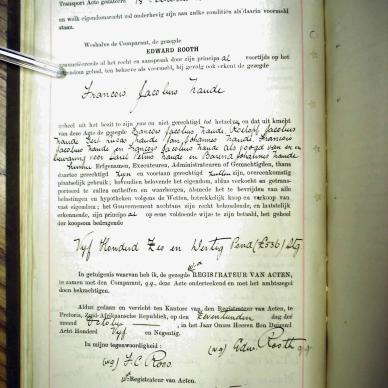 Transport Acte gedateerd
en welk eigendomsrecht nu onderhevig zijn aan zulke condities als daarin voormeld
staan.
Weshalve de Comparant, de gezegde
EDWARD ROOTH
al het recht en aanspraak door zijn principaal voortijds op het
eigendom gehad, ten behoeve als voormeld, bij gevolg ook erkent de gezegde
Francois Jacobus Naude
geheel uit het bezit te zijn en niet gerechtigd tot hetzelve, en dat uit kracht
van deze Acte de gezegde Francois Jacobus Naude, Roelof Jacobus
Naude, Naude, Jan Johannes Naude, Francois
Jacobus Naude en Francois Jacobus Naude als voogd van en in
bewaring voor Carel Naude en Barend Johannes Naude
hunne Erfgenamen, Executeuren, Administrateuren of Gemachtigden, thans
daartoe gerechtigd zijn en voortaan zullen zijn, overeenkomstig
plaatselijk gebruik; houdende belovende het eigendom, aldus verkocht en getrans-
porteerd te zullen ontheffen en waarborgen, alsmede het te bevrijden van alle
belastingen en hypotheken volgens de Wetten, betrekkelijk koop en verkoop van
vast eigendom; het Gouvernement nochtans zijn recht behoudende, en laatstelijk
erkennende, zijn principaal op eene voldoende wijze te zijn betaald, het geheel
der koopsom bedragende
Vyf Honderd Zes en Dertig Pond (£536) Stg
In getuigenis waarvan heb ik, de gezegde REGISTRATEUR VAN ACTEN,
te zamen met den Comparant, q.q., deze Acte onderteekend en met het ambtszegel
doen bekrachtigen.
Aldus gedaan en verricht ten Kantore van den Registrateur van Acten, te
Pretoria, Zuid-Afrikaansche Republiek, op den dag der
maand October, in het Jaar Onzes Heeren Een Duizend
Acht Honderd Vyf en Negentig.
In mijne tegenwoordigheid:
(wg) Edw. Rooth q.q.
(wg) J. C. Roos.
Registrateur van Acten.